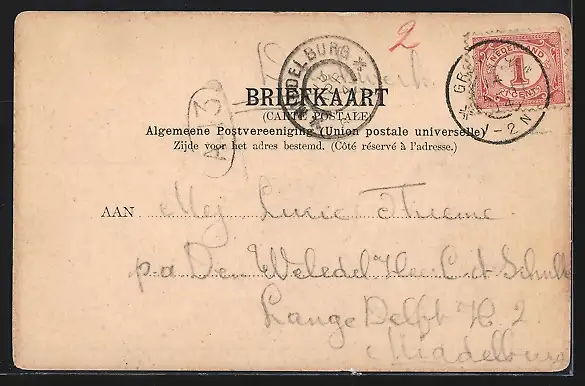 2
Drukwerk
MIDDELBURG
NEDERLAND
1
CENT
GR
1-2N
A 13
BRIEFKAART
(CARTE POSTALE)
Algemeene Postvereeniging (Union postale universelle)
Zijde voor het adres bestemd. (Côté réservé à l'adresse.)
AAN Mej Lucie Thieme.
p.a Den Weledel Heer C. d.
Lange Delft H 2.
Middelburg